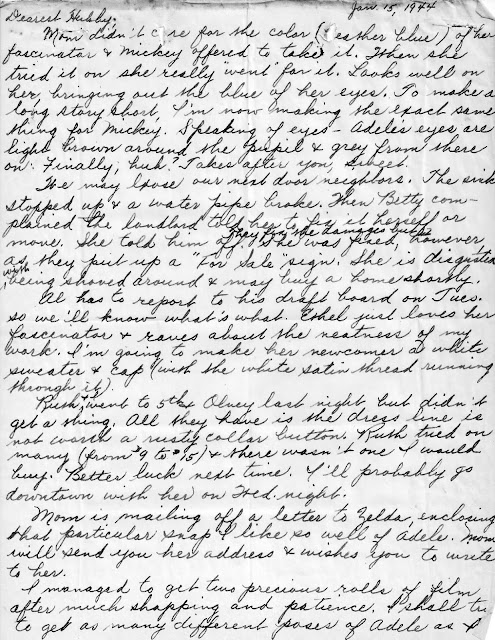 Jan. 15, 1944
Dearest Hubby,
Mom didn't care for the color (leather blue) of her
fascinator & Mickey offered to take it. When she
tried it on she really "went" for it. Looks well on
her, bringing out the blue of her eyes. To make a
long story short, I'm now making the exact same
thing for Mickey. Speaking of eyes - Adele's eyes are
light brown around the pupil & grey from there
on. Finally, huh? Takes after you,
We may loose our next door neighbors. The sink
stopped up & a water pipe broke. Then Betty com-
plained the landlord told her to fix it herself or
move. She told him off. She was piqued, however,
as they put up a "For Sale" sign. She is disgusted
with being shoved around & may buy a home shortly.
Al has to report to his draft board on Tues.
so we'll know what's what. Ethel just loves her
fascinator & raves about the neatness of my
work. I'm going to make her newcomer a white
sweater & cap (with the white satin thread running
through it).
Ruth went to 5th & Olney last night but didn't
get a thing. All they have is the dress line is
not worth a rusty collar button. Ruth tried on
many (from $9 to $15) & there wasn't one I would
buy. Better luck next time. I'll probably go
downtown with her on Wed. night.
Mom is mailing off a letter to Zelda, enclosing
that particular snap I like so well of Adele. Mom
will send you her address & wishes you to write
to her.
I managed to get two precious rolls of film
after much shopping and patience. I shall try
to get as many different poses of Adele as I